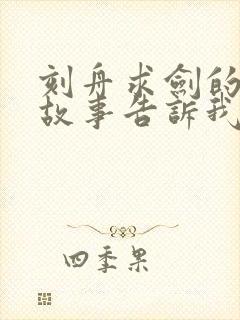 刻舟求劍的
故事告訴我
四季果